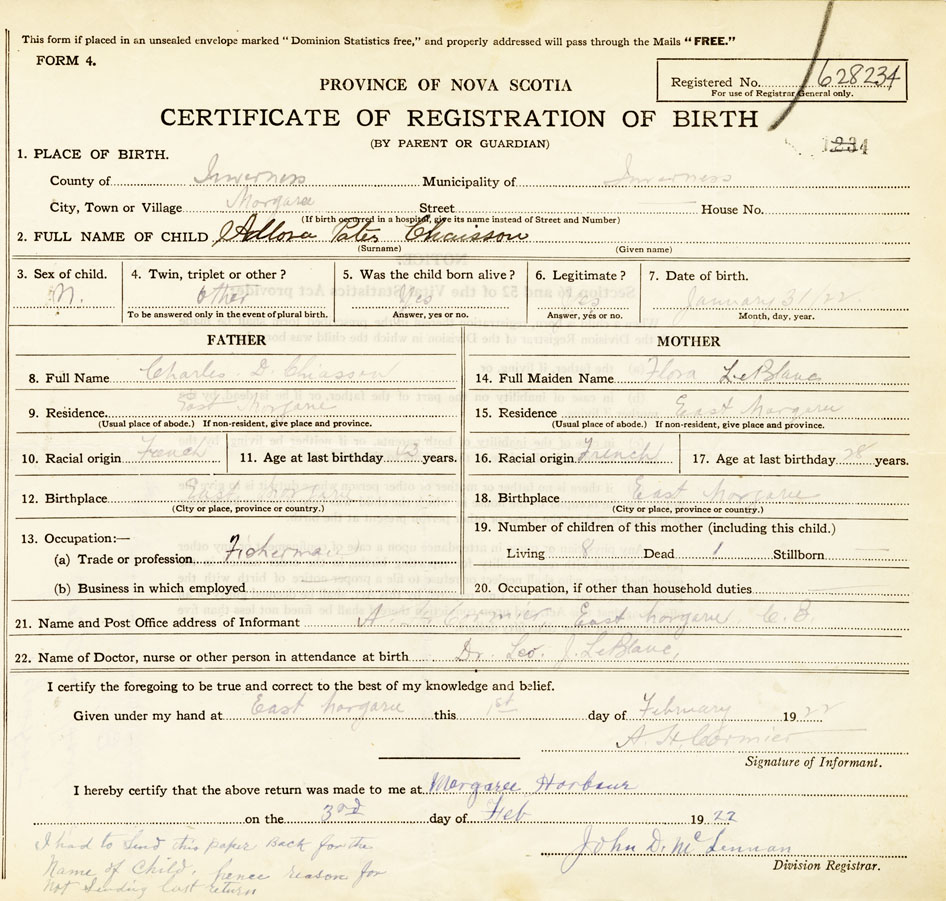 This form if placed in an unsealed envelope marked "Dominion Statistics free," and properly addressed will pass through the Mails "FREE."
FORM 4.
Registered No. 628234
For use of Registrar General only.
PROVINCE OF NOVA SCOTIA
CERTIFICATE OF REGISTRATION OF BIRTH
(BY PARENT OR GUARDIAN)
1234
1. PLACE OF BIRTH.
County of Inverness Municipality of Inverness
City, Town or Village Margaree Street House No.
(If birth occurred in a hospital, give its name instead of Street and Number)
2. FULL NAME OF CHILD Pater Chaisson
(Surname) (Given name)
3. Sex of child. 4. Twin, triplet or other? 5. Was the child born alive? 6. Legitimate? 7. Date of birth.
M. other Yes Yes January 31/22
To be answered only in the event of plural birth. Answer, yes or no. Answer, yes or no. Month, day, year.
FATHER MOTHER
8. Full Name Charles D. Chiasson 14. Full Maiden Name Flora LeBlanc
9. Residence. East Margaree 15. Residence East Margaree
(Usual place of abode.) If non-resident, give place and province. (Usual place of abode.) If non-resident, give place and province.
10. Racial origin French 11. Age at last birthday years. 16. Racial origin French 17. Age at last birthday 28 years.
12. Birthplace East Margaree 18. Birthplace East Margaree
(City or place, province or country.) (City or place, province or country.)
13. Occupation:— 19. Number of children of this mother (including this child.)
(a) Trade or profession Ficherman Living 8 Dead 1 Stillborn —
(b) Business in which employed 20. Occupation, if other than household duties
21. Name and Post Office address of Informant A. H. Cormier East Margaree C. B.
22. Name of Doctor, nurse or other person in attendance at birth Dr. Leo. J. LeBlanc,
I certify the foregoing to be true and correct to the best of my knowledge and belief.
Given under my hand at East Margaree this 1st day of February 1922
A. H. Cormier
Signature of Informant.
I hereby certify that the above return was made to me at Margaree Harbour
on the 3rd day of Feb 1922
John D. McLennan
Division Registrar.
I had to Send this paper Back for the
Name of Child, hence reason for
Not Sending last return